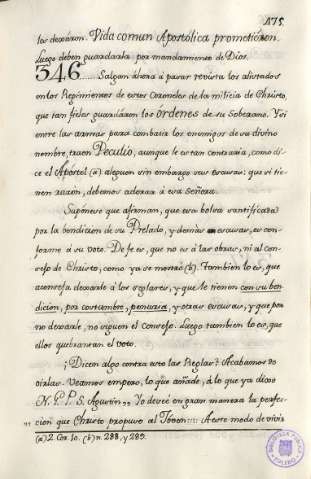 175.
los dexáron. Vida comun Apostólica prometiéron.
Luego deben guardarla por mandamiento de Dios.
346...... Salgan ahora á pasar revista los alistados
en los Regimientos de estos Coroneles de la milicia de Christo,
que tan fieles guardáron las órdenes de su Soberano. Y si
entre las armas para combatir los enemigos de su divino
nombre, traen Peculio, aunque le es tan contraria, como di-
ce el Apóstol (a) aleguen sin embargo sus escusas: que si tie-
nen razon, debemos adorar á esa Señora.
Supónese que afirman, que esa bolsa santificada
por la bendicion de su Prelado, y demas escusas, es con-
forme á su voto. De fe es, que no es á las obras, ni al con-
sejo de Christo, como ya se mostró (b). Tambien lo es, que
aconseja dexarle á los seglares, y que le tienen con su ben-
dicion, por costumbre, penuria, y otras escusas, y que por
no dexarle, no siguen el Consejo. Luego tambien lo es, que
ellos quebrantan el voto.
¿Dicen algo contra esto las Reglas? Acabamos de
oirlas. Veamos empero, lo que añade, á lo que ya dixo
N. P. P. S. Agustin „ Yo deseé en gran manera la perfec-
„ cion que Christo propuso al Jóven .... A este modo de vivir
(a) 2. Cor. 10. (b) n. 288, y 289.